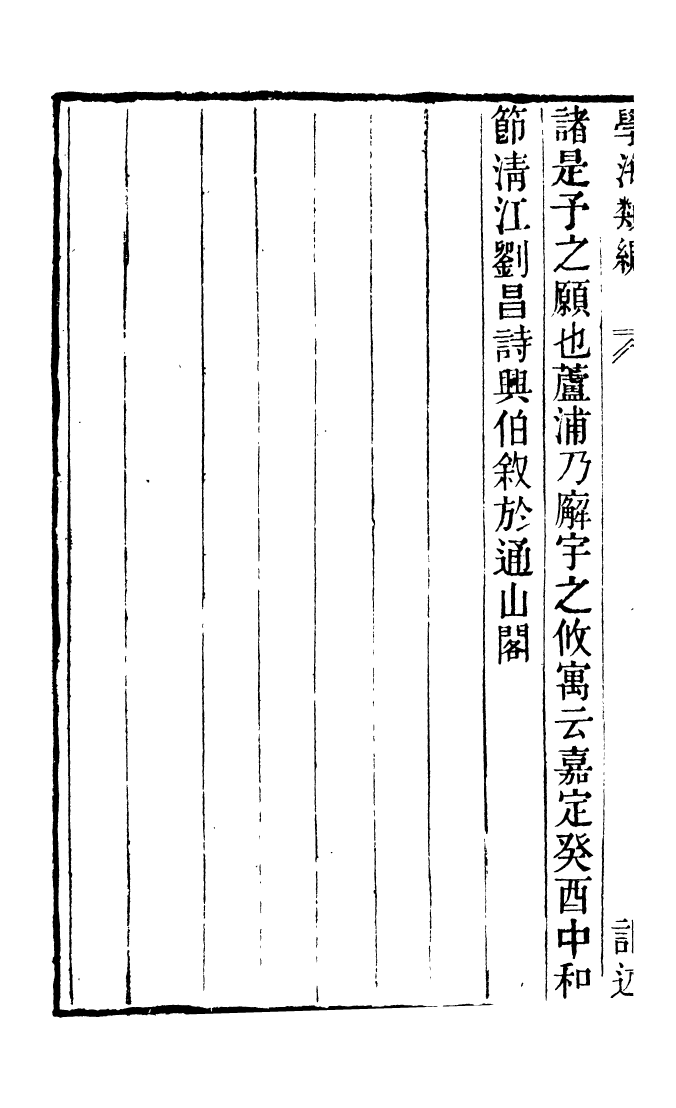 學海類編 記述
諸是予之願也蘆浦乃廨宇之攸寓云嘉定癸酉中和
節清江劉昌詩興伯敘於通山閣